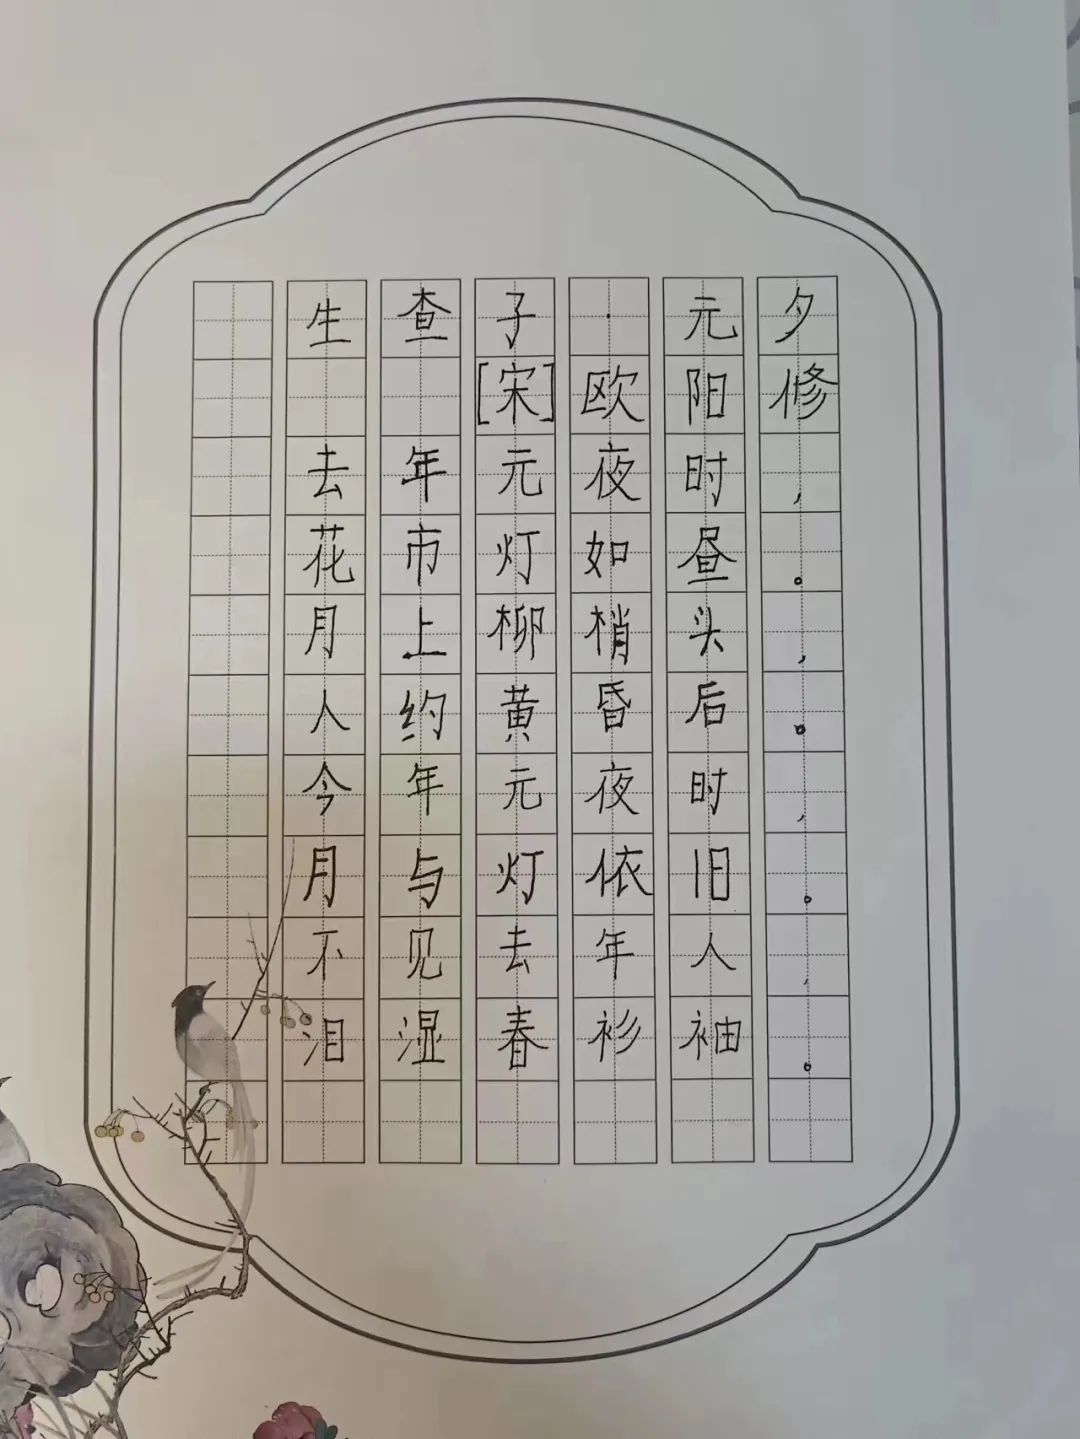 生查子·元夕
[宋]欧阳修
去年元夜时，
花市灯如昼。
月上柳梢头，
人约黄昏后。
今年元夜时，
月与灯依旧。
不见去年人，
泪湿春衫袖。